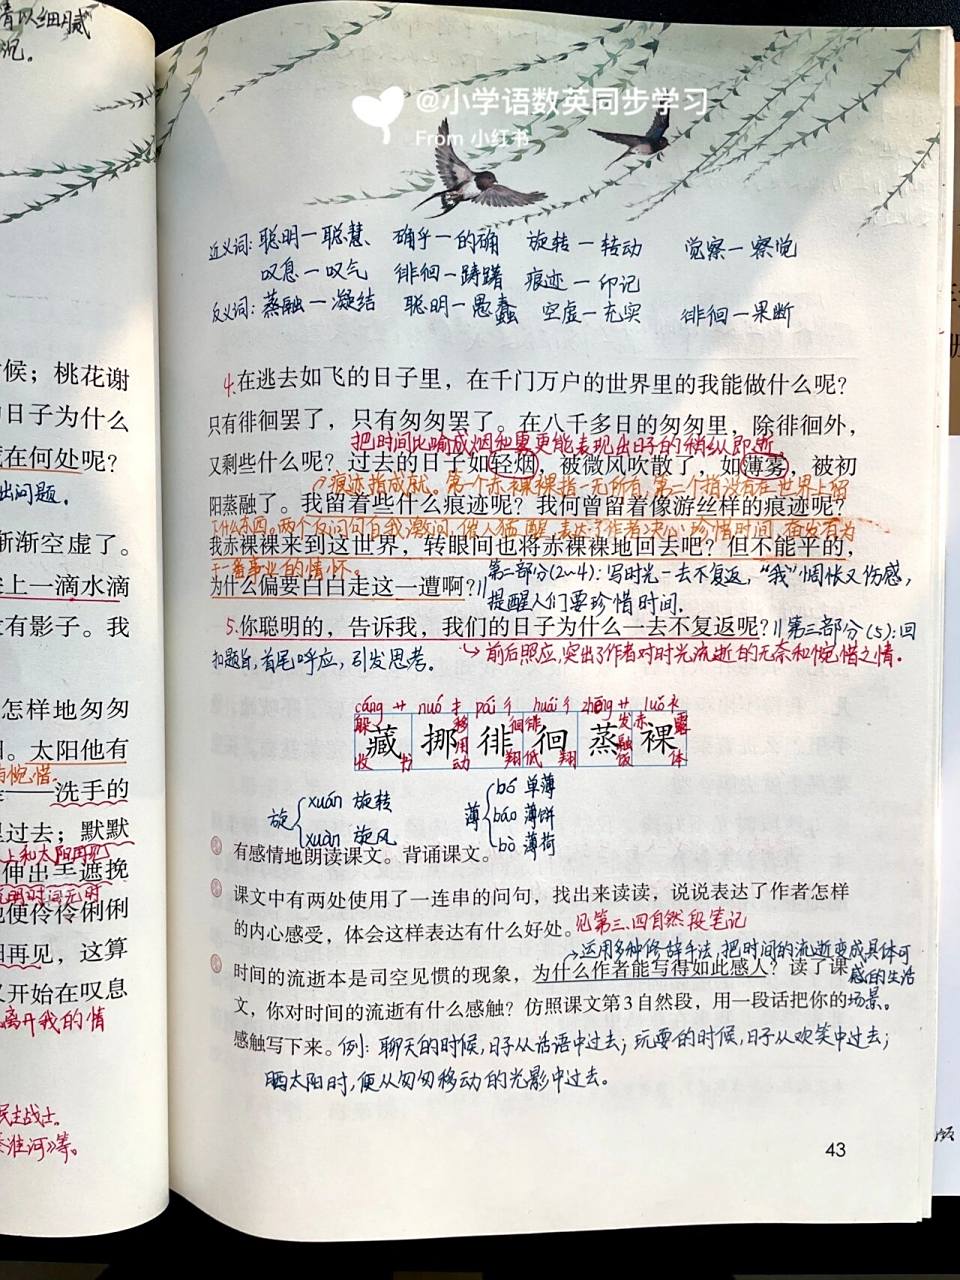 情以细腻
沉。
@小学语数英同步学习
From 小红书
近义词: 聪明—聪慧 确乎—的确 旋转—转动 觉察—察觉
叹息—叹气 徘徊—踌躇 痕迹—印记
反义词: 蒸融—凝结 聪明—愚蠢 空虚—充实 徘徊—果断
候；桃花谢
日子为什么
在何处呢？
出问题。
渐渐空虚了。
上一滴水滴
有影子。我
怎样地匆匆
。太阳他有
与惋惜。
——洗手的
过去；默默
上和太阳再见
伸出手遮挽
便伶伶俐俐
再见，这算
开始在叹息
离开我的情
民主战士。
秦淮河》等。
4.在逃去如飞的日子里，在千门万户的世界里的我能做什么呢？
只有徘徊罢了，只有匆匆罢了。在八千多日的匆匆里，除徘徊外，
把时间比喻成烟和雾更能表现出日子的稍纵即逝
又剩些什么呢？过去的日子如轻烟，被微风吹散了，如薄雾，被初
痕迹指成就。第一个赤裸裸指一无所有,第二个指没有在世界上留
阳蒸融了。我留着些什么痕迹呢？我何曾留着像游丝样的痕迹呢？
了什么东西。两个反问句自我激问,催人猛醒,表达了作者决心珍惜时间,奋发有为
我赤裸裸来到这世界，转眼间也将赤裸裸地回去吧？但不能平的，
干一番事业的情怀。
为什么偏要白白走这一遭啊？//第二部分(2~4): 写时光一去不复返, “我”惆怅又伤感,
提醒人们要珍惜时间.
5.你聪明的，告诉我，我们的日子为什么一去不复返呢？//第三部分(5): 回
扣题旨,首尾呼应,引发思考。 前后照应,突出了作者对时光流逝的无奈和惋惜之情.
cáng 艹 nuó 扌 pái 彳 huái 彳 zhēng 艹 luǒ 衤
躲 移 徊 徘 发 赤 露
藏 挪 徘 徊 蒸 裸
用 融
收 书 动 翔 低 翔 饭 体
旋 xuán 旋转
xuàn 旋风
薄 bó 单薄
báo 薄饼
bò 薄荷
有感情地朗读课文。背诵课文。
课文中有两处使用了一连串的问句，找出来读读，说说表达了作者怎样
的内心感受，体会这样表达有什么好处。见第三、四自然段笔记
运用多种修辞手法,把时间的流逝变成具体可
时间的流逝本是司空见惯的现象，为什么作者能写得如此感人？读了课 感的生活
文，你对时间的流逝有什么感触？仿照课文第3自然段，用一段话把你的 场景。
感触写下来。例: 聊天的时候,日子从话语中过去; 玩耍的时候,日子从欢笑中过去;
晒太阳时,便从匆匆移动的光影中过去。
43